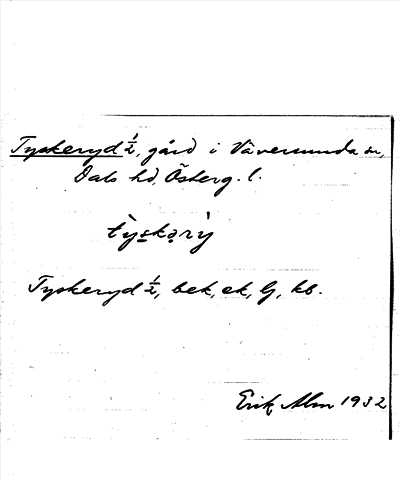 Tyskeryd ½, gård i Väversunda sn,
Dals hd, Österg. l.
ty̍skərỳ
Tyskeryd ½, bek, ek, lj, kb.
Erik Alm 1932